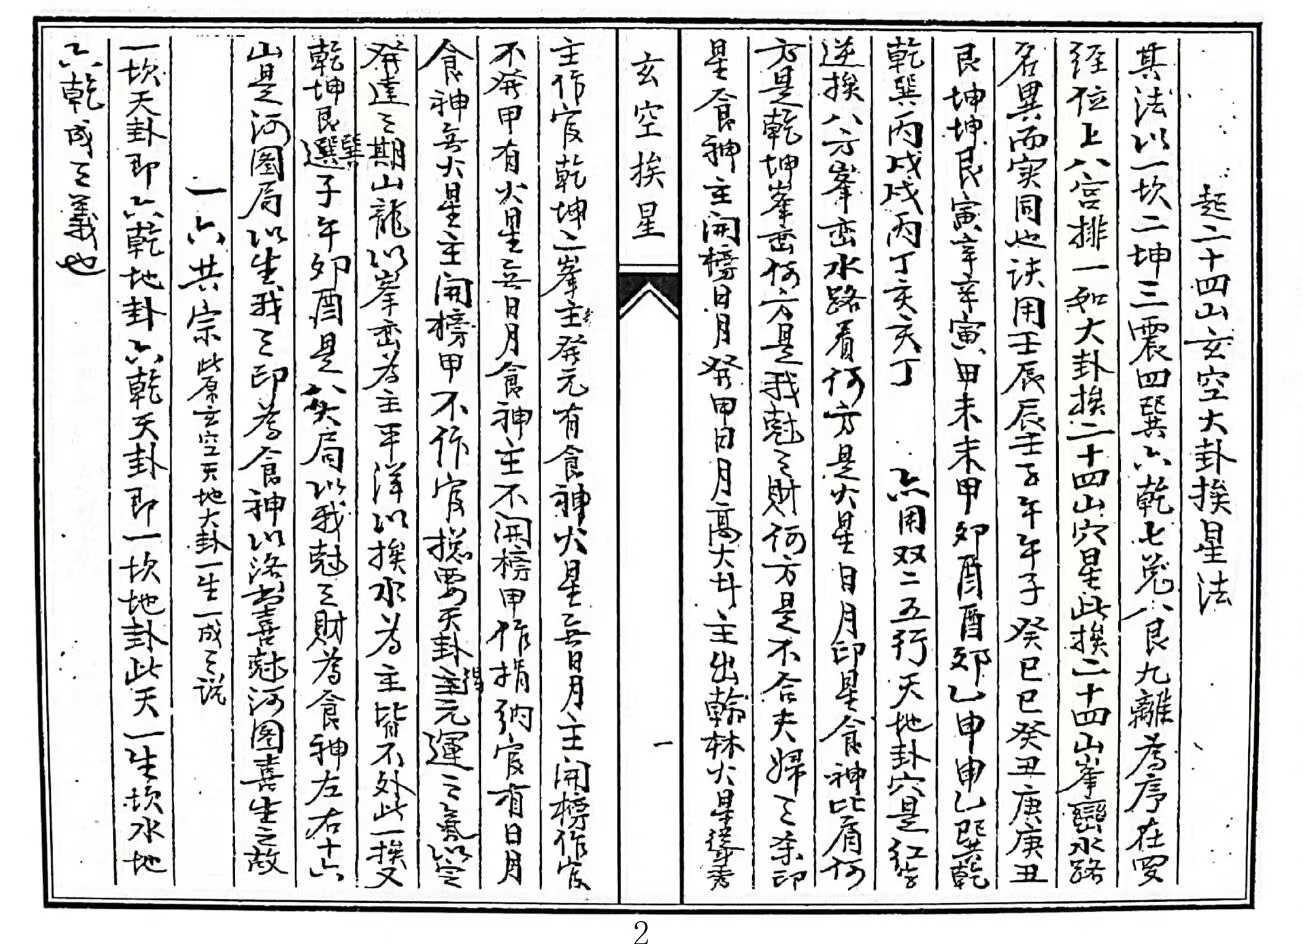 起二十四山玄空大卦挨星法
其法以一坎二坤三震四巽六乾七兌八艮九離為序在四
經位上八宮排一如大卦挨二十四山穴星此挨二十四山峯巒水路
名異而实同也诀用壬辰辰壬子午午子癸巳巳癸丑庚庚丑
艮坤坤艮寅辛辛寅甲未未甲夘酉酉夘乙申申乙巽乾
乾巽丙戌戌丙丁亥亥丁 六用双二五行天地卦穴是红字
逆挨八方峯峦水路看何方是火星日月印星食神比肩何
方是乾坤峯峦何方是我尅之財何方是不合夫婦之杀印
星食神主開榜日月癸甲日月高大斗主出翰林火星聳秀
玄空挨星
一
主作官乾坤之峯主發元有食神火星無日月主開榜作官
不發甲有火星無日月食神主不開榜甲作捐納官有日月
食神無火星主開榜甲不作官摠要天卦得元運之氣以定
發達之期山龍以峯峦為主平洋以挨水為主皆不外此一挨又
乾坤艮巽子午夘酉是八大局以我尅之財為食神左右十六
山是河图局以生我之印為食神以洛书喜尅河图喜生之故
一六共宗此原玄空天地大卦一生一成之说
一坎天卦即六乾地卦六乾天卦即一坎地卦此天一生坎水地
六乾成之義也
2